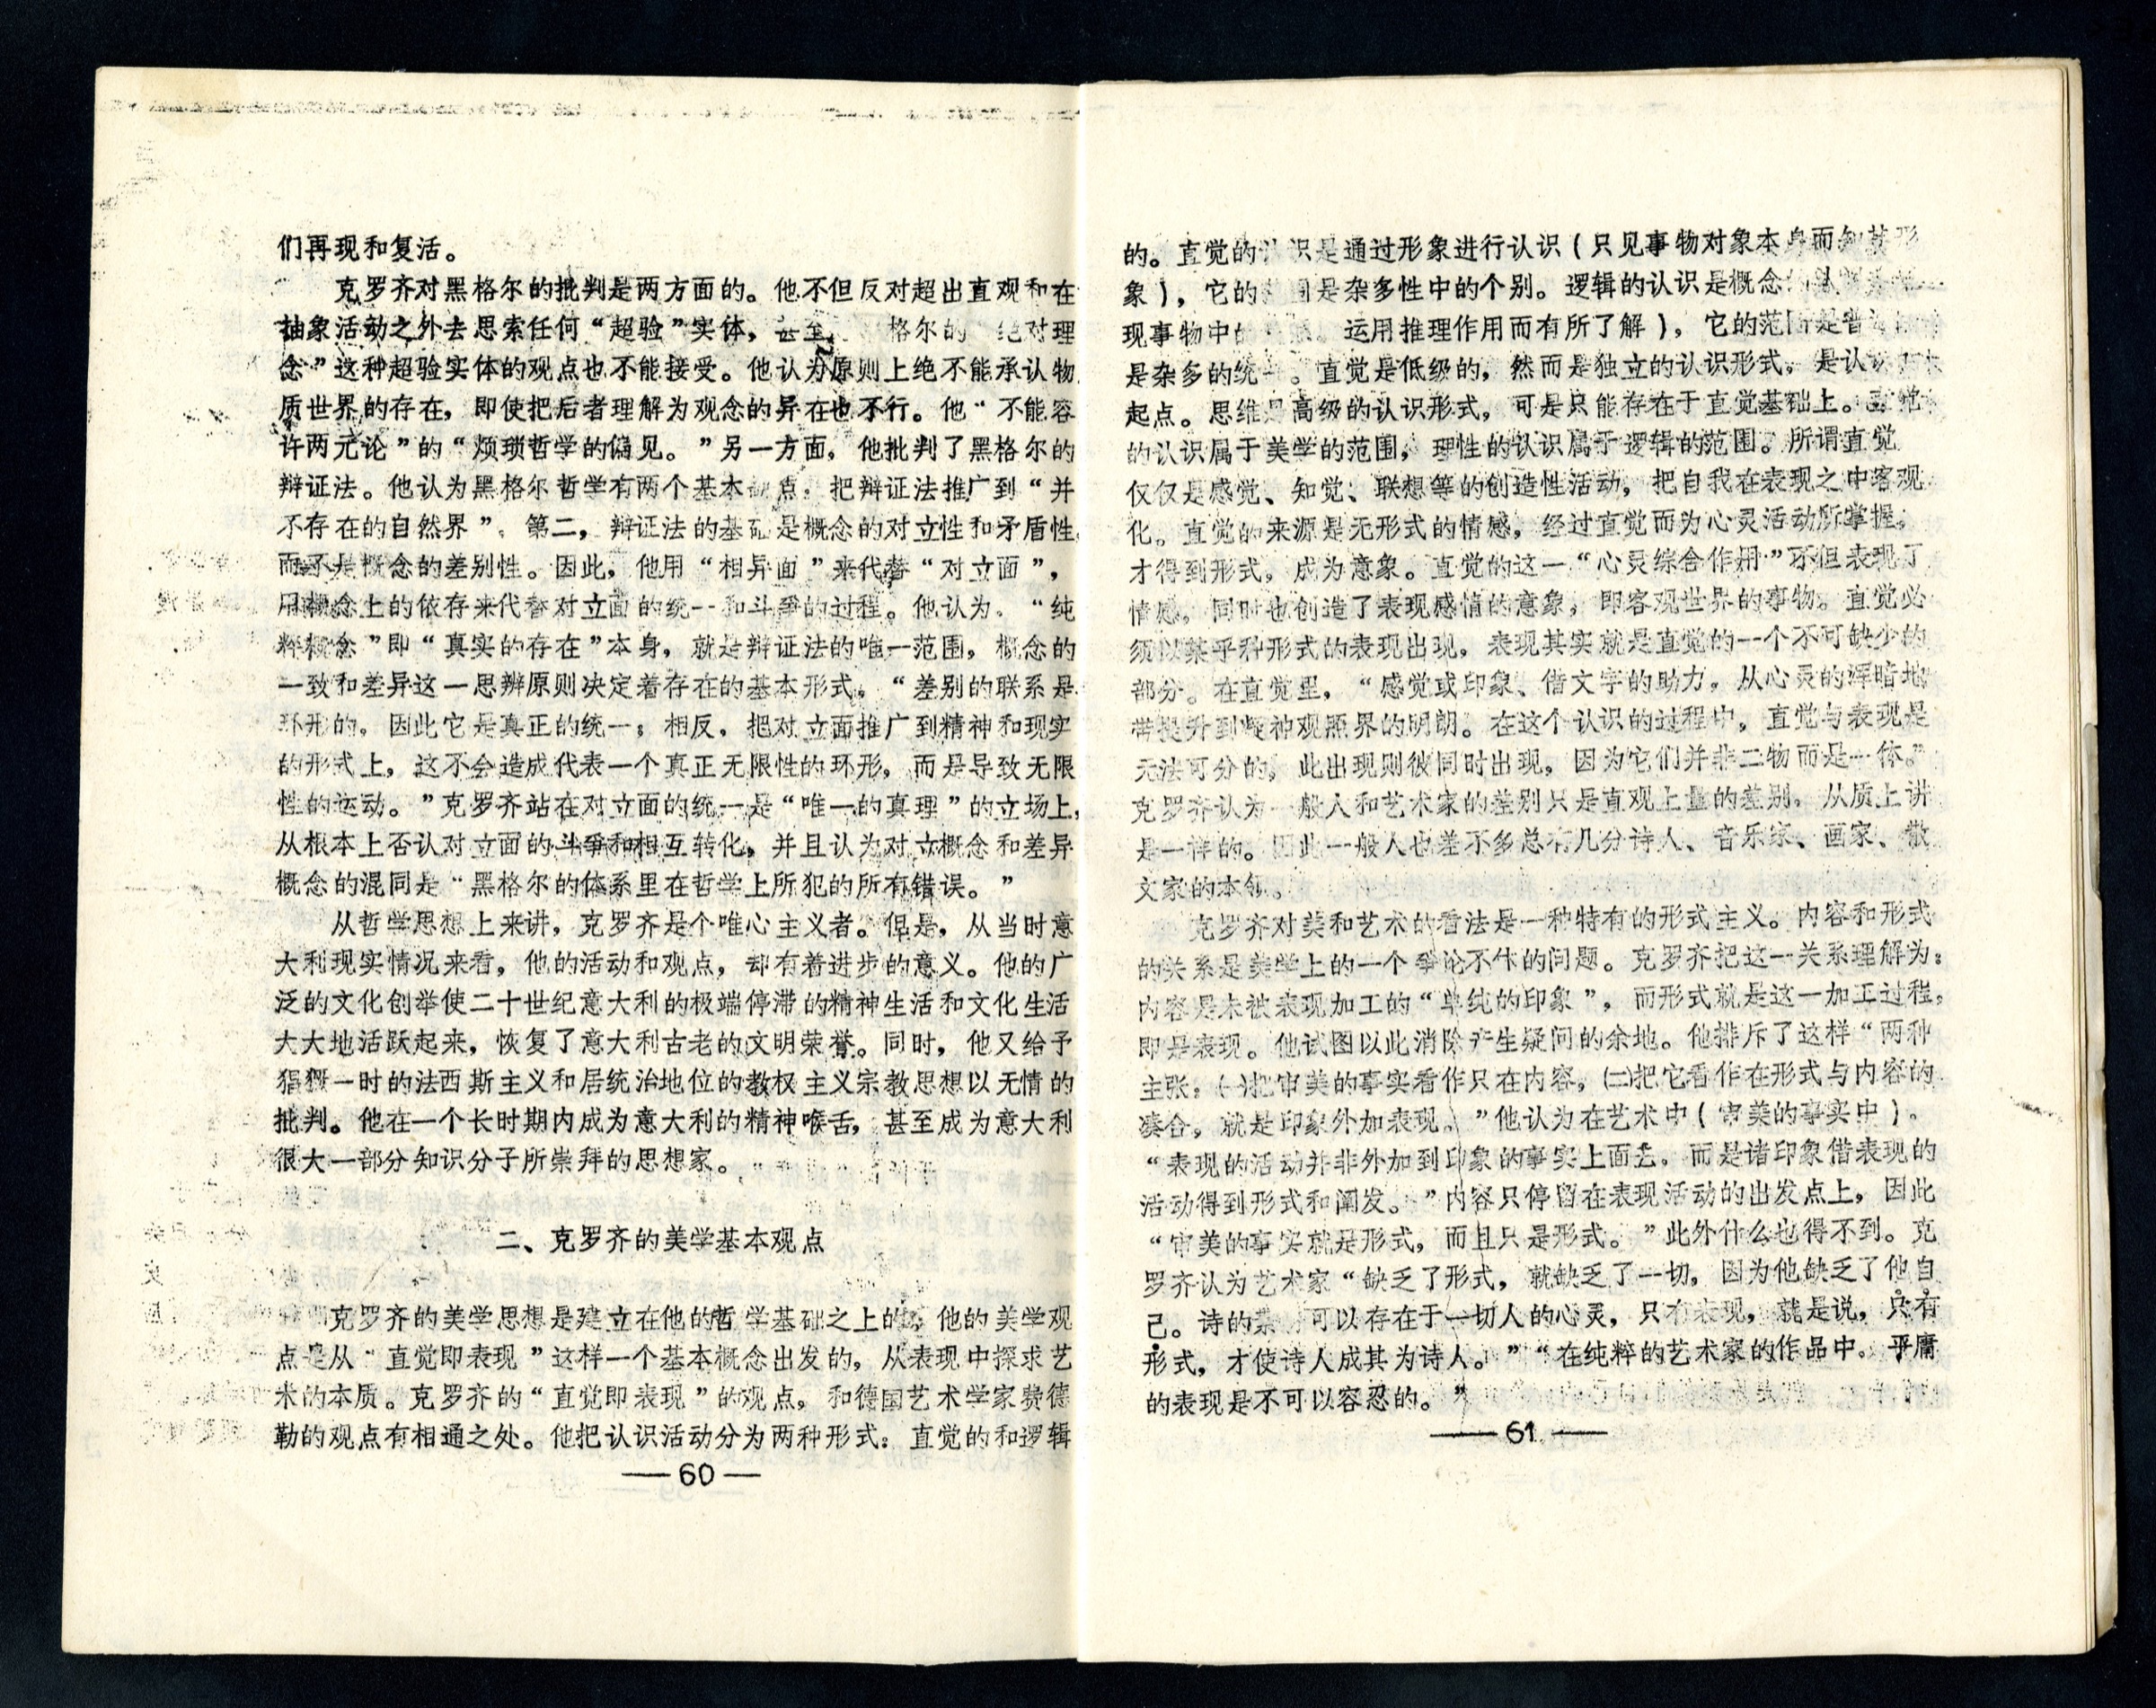 们再现和复活。
克罗齐对黑格尔的批判是两方面的。他不但反对超出直观和在
抽象活动之外去思索任何“超验”实体，甚至 格尔的 绝对理
念”这种超验实体的观点也不能接受。他认为原则上绝不能承认物
质世界的存在，即使把后者理解为观念的异在也不行。他“不能容
许两元论”的“烦琐哲学的偏见。”另一方面，他批判了黑格尔的
辩证法。他认为黑格尔哲学有两个基本 点，把辩证法推广到“并
不存在的自然界”。第二，辩证法的基础是概念的对立性和矛盾性，
而不是概念的差别性。因此，他用“相异面”来代替“对立面”，
用概念上的依存来代替对立面的统一和斗争的过程。他认为，“纯
粹概念”即“真实的存在”本身，就是辩证法的唯一范围，概念的
一致和差异这一思辨原则决定着存在的基本形式，“差别的联系是
环形的，因此它是真正的统一；相反，把对立面推广到精神和现实
的形式上，这不会造成代表一个真正无限性的环形，而是导致无限
性的运动。”克罗齐站在对立面的统一是“唯一的真理”的立场上，
从根本上否认对立面的斗争和相互转化，并且认为对立概念和差异
概念的混同是“黑格尔的体系里在哲学上所犯的所有错误。”
从哲学思想上来讲，克罗齐是个唯心主义者。但是，从当时意
大利现实情况来看，他的活动和观点，却有着进步的意义。他的广
泛的文化创举使二十世纪意大利的极端停滞的精神生活和文化生活
大大地活跃起来，恢复了意大利古老的文明荣誉。同时，他又给予
猖獗一时的法西斯主义和居统治地位的教权主义宗教思想以无情的
批判。他在一个长时期内成为意大利的精神喉舌，甚至成为意大利
很大一部分知识分子所崇拜的思想家。
二、克罗齐的美学基本观点
克罗齐的美学思想是建立在他的哲学基础之上的，他的美学观
点是从“直觉即表现”这样一个基本概念出发的，从表现中探求艺
术的本质。克罗齐的“直觉即表现”的观点，和德国艺术学家费德
勒的观点有相通之处。他把认识活动分为两种形式：直觉的和逻辑
—60—
的。直觉的认识是通过形象进行认识（只见事物对象本身而知其形
象），它的 是杂多性中的个别。逻辑的认识是概念
现事物中 运用推理作用而有所了解），它的范 是普
是杂多的统一。直觉是低级的，然而是独立的认识形式，是认识
起点。思维是高级的认识形式，可是只能存在于直觉基础上。直觉
的认识属于美学的范围，理性的认识属于逻辑的范围。所谓直觉
仅仅是感觉、知觉、联想等的创造性活动，把自我在表现之中客观
化。直觉的来源是无形式的情感，经过直觉而为心灵活动所掌握，
才得到形式，成为意象。直觉的这一“心灵综合作用”不但表现了
情感，同时也创造了表现感情的意象，即客观世界的事物。直觉必
须以某乎种形式的表现出现，表现其实就是直觉的一个不可缺少的
部分。在直觉里，“感觉或印象、借文字的助力，从心灵的浑暗地
带提升到凝神观照界的明朗。在这个认识的过程中，直觉与表现是
无法可分的，此出现则彼同时出现，因为它们并非二物而是一体。”
克罗齐认为一般人和艺术家的差别只是直观上量的差别，从质上讲
是一样的。因此一般人也差不多总有几分诗人、音乐家、画家、散
文家的本领。
克罗齐对美和艺术的看法是一种特有的形式主义。内容和形式
的关系是美学上的一个争论不休的问题。克罗齐把这一关系理解为：
内容是未被表现加工的“单纯的印象”，而形式就是这一加工过程，
即是表现。他试图以此消除产生疑问的余地。他排斥了这样“两种
主张：㈠把审美的事实看作只在内容，㈡把它看作在形式与内容的
凑合，就是印象外加表现。”他认为在艺术中（审美的事实中），
“表现的活动并非外加到印象的事实上面去，而是诸印象借表现的
活动得到形式和阐发。”内容只停留在表现活动的出发点上，因此
“审美的事实就是形式，而且只是形式。”此外什么也得不到。克
罗齐认为艺术家“缺乏了形式，就缺乏了一切，因为他缺乏了他自
己。诗的 可以存在于一切人的心灵，只有表现，就是说，只有
形式，才使诗人成其为诗人。”“在纯粹的艺术家的作品中。平庸
的表现是不可以容忍的。”
—61—